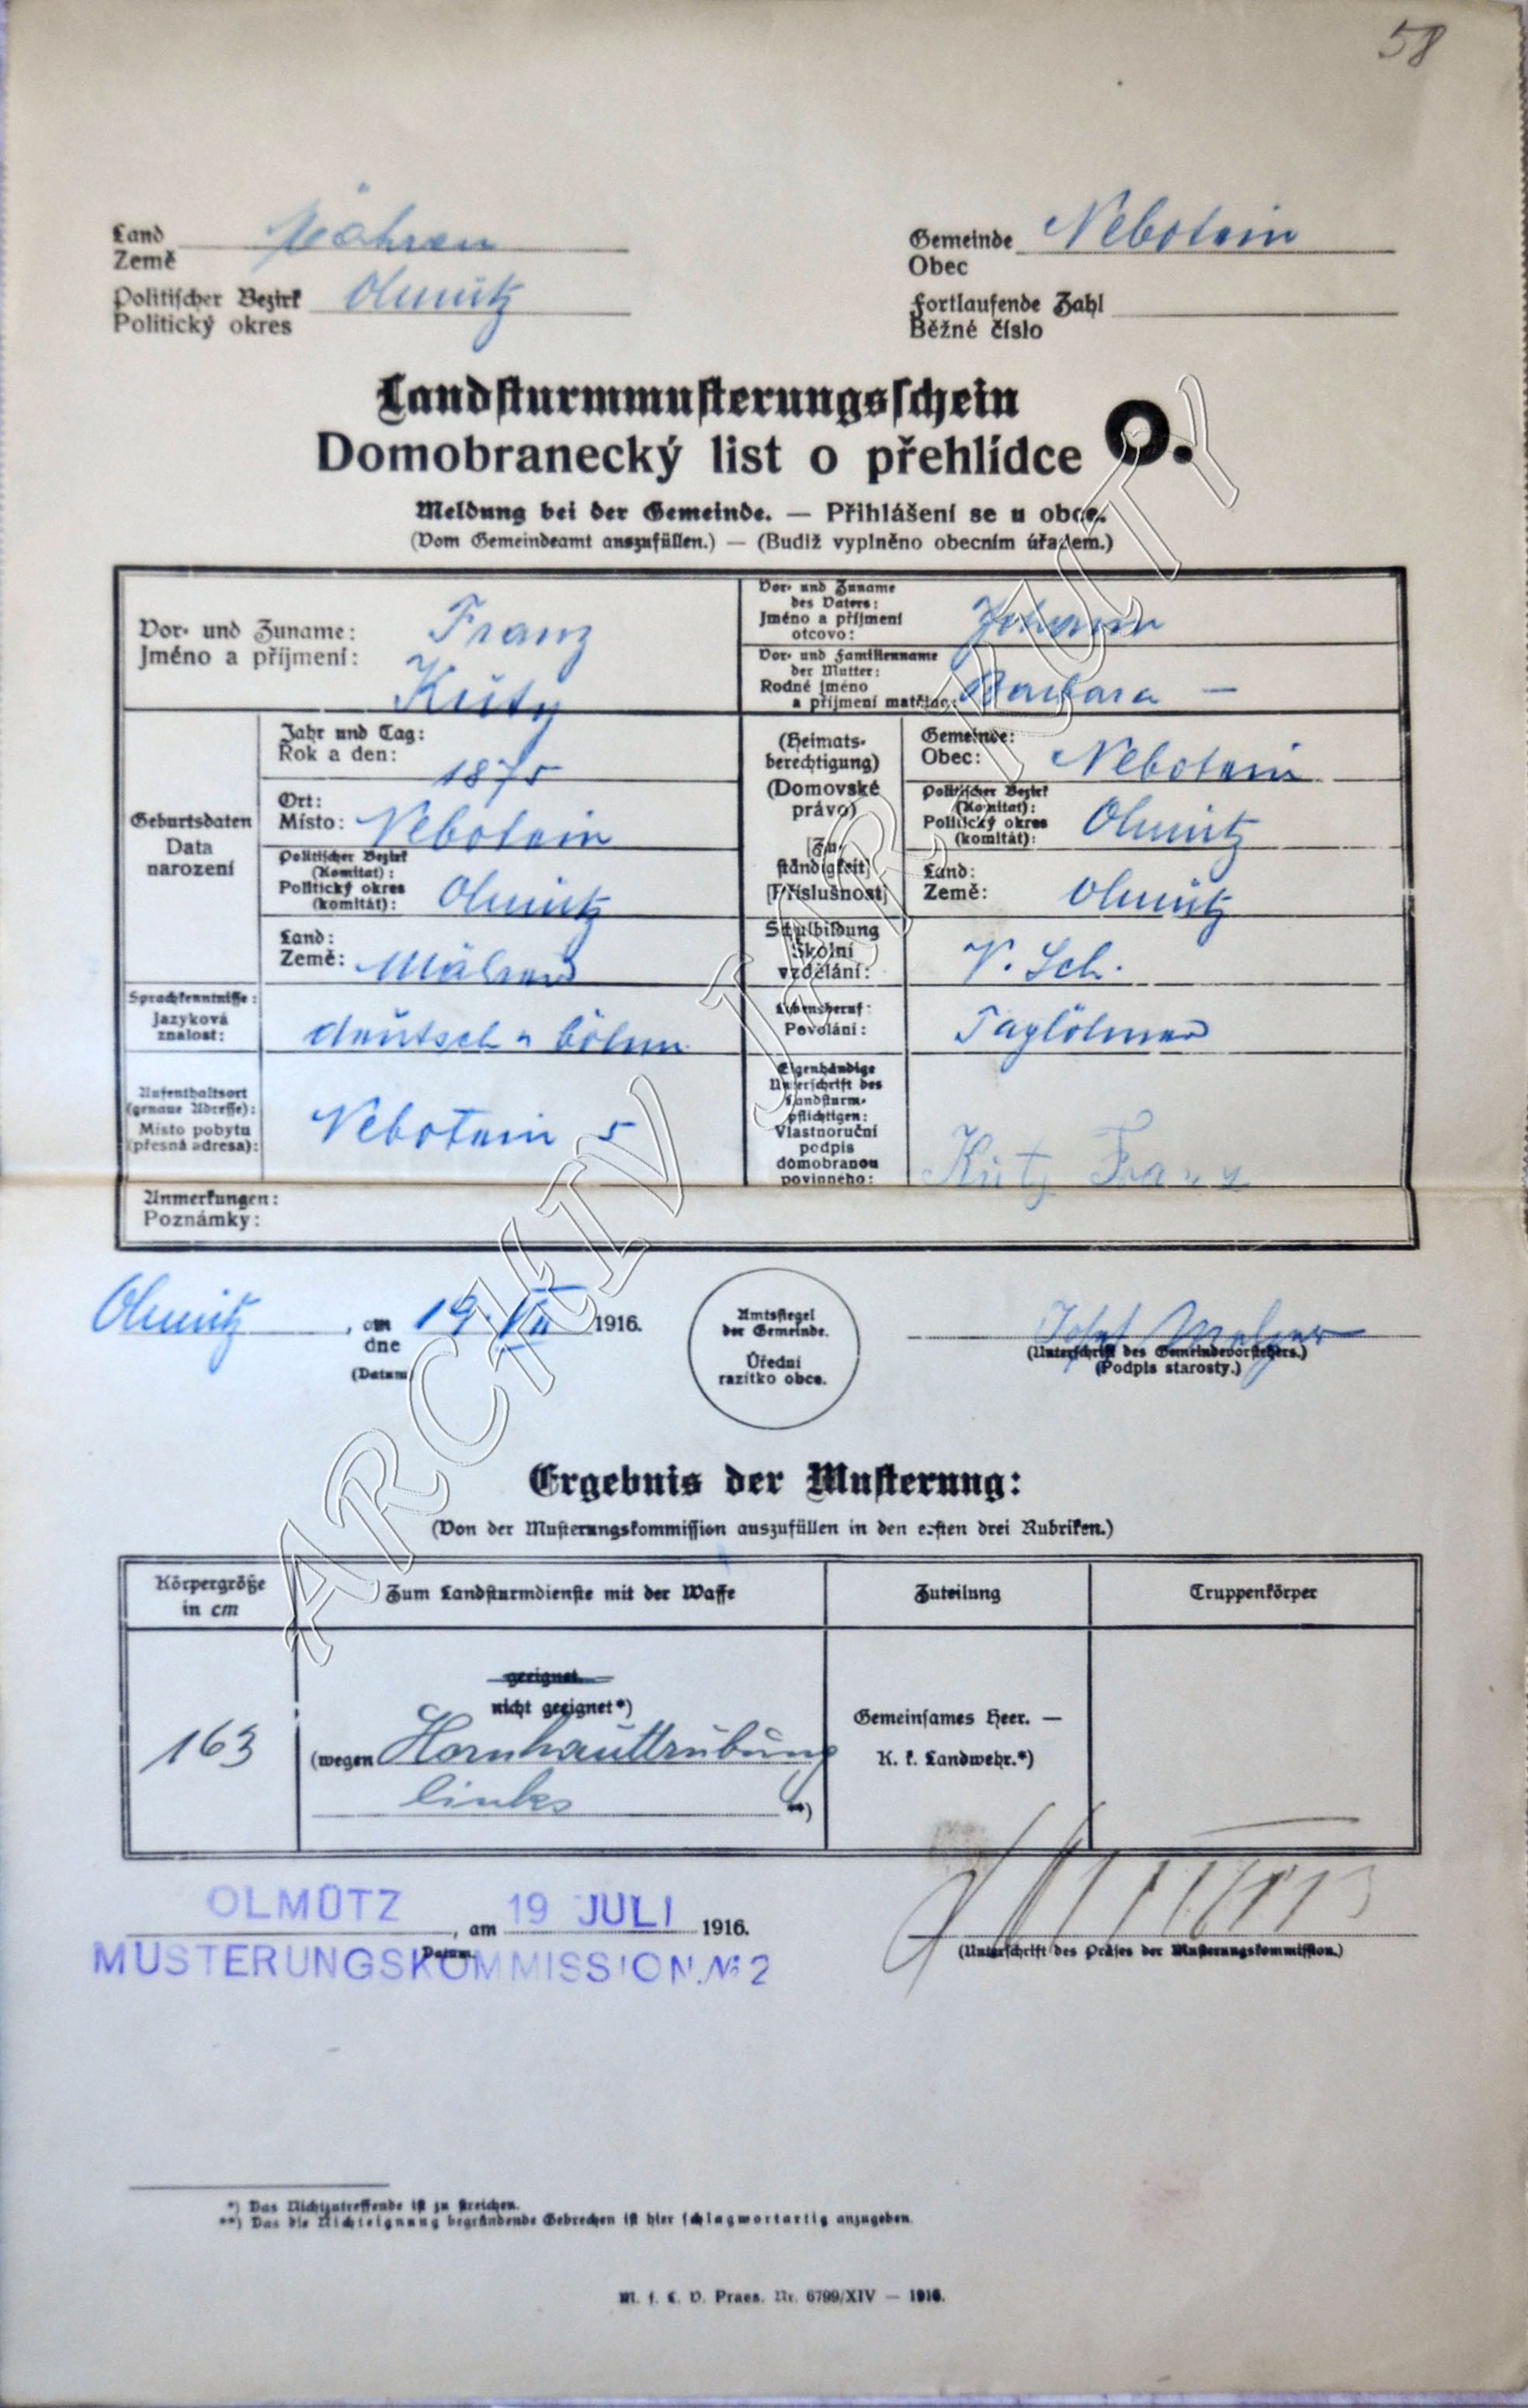 58
Land Mähren
Země
Politischer Bezirk Olmütz
Politický okres
Gemeinde Nebotein
Obec
Fortlaufende Zahl
Běžné číslo
Landsturmmusterungsschein
Domobranecký list o přehlídce O.
Meldung bei der Gemeinde. — Přihlášení se u obce.
(Vom Gemeindeamt auszufüllen.) — (Budiž vyplněno obecním úřadem.)
Vor- und Zuname: Franz
Jméno a příjmení: Kuty
Vor- und Zuname
des Vaters:
Jméno a příjmení
otcovo: Johann
Vor- und Familienname
der Mutter:
Rodné jméno
a příjmení matčino: Barbara —
Geburtsdaten
Data
narození
Jahr und Tag:
Rok a den: 1875
Ort:
Místo: Nebotein
Politischer Bezirk
(Komitat):
Politický okres
(komitát): Olmütz
Land:
Země: Mähren
(Heimats-
berechtigung)
(Domovské
právo)
[Zu-
ständigkeit]
[Příslušnost]
Gemeinde:
Obec: Nebotein
Politischer Bezirk
(Komitat):
Politický okres
(komitát): Olmütz
Land:
Země: Olmütz
Sprachkenntnisse:
Jazyková
znalost: deutsch u böhm.
Schulbildung
Školní
vzdělání: V. Sch.
Lebensberuf:
Povolání: Taglöhner
Aufenthaltsort
(genaue Adresse):
Místo pobytu
(přesná adresa): Nebotein 5
Eigenhändige
Unterschrift des
Landsturm-
pflichtigen:
Vlastnoruční
podpis
domobranou
povinného: Kuty Franz
Anmerkungen:
Poznámky:
Olmütz, am 19 VII 1916.
dne
(Datum)
Amtssiegel
der Gemeinde.
Úřední
razítko obce.
Josef
(Unterschrift des Gemeindevorstehers.)
(Podpis starosty.)
Ergebnis der Musterung:
(Von der Musterungskommission auszufüllen in den ersten drei Rubriken.)
Körpergröße
in cm
Zum Landsturmdienste mit der Waffe
Zuteilung
Truppenkörper
163
geeignet
nicht geeignet*)
(wegen Hornhauttrübung
links **)
Gemeinsames Heer. —
K. k. Landwehr.*)
OLMÜTZ, am 19 JULI 1916.
Datum.
MUSTERUNGSKOMMISSION № 2
(Unterschrift des Präses der Musterungskommission.)
*) Das Nichtzutreffende ist zu streichen.
**) Das die Nichteignung begründende Gebrechen ist hier schlagwortartig anzugeben.
M. f. L. V. Praes. Nr. 6799/XIV — 1916.
ARCHIV JAR. KUTY